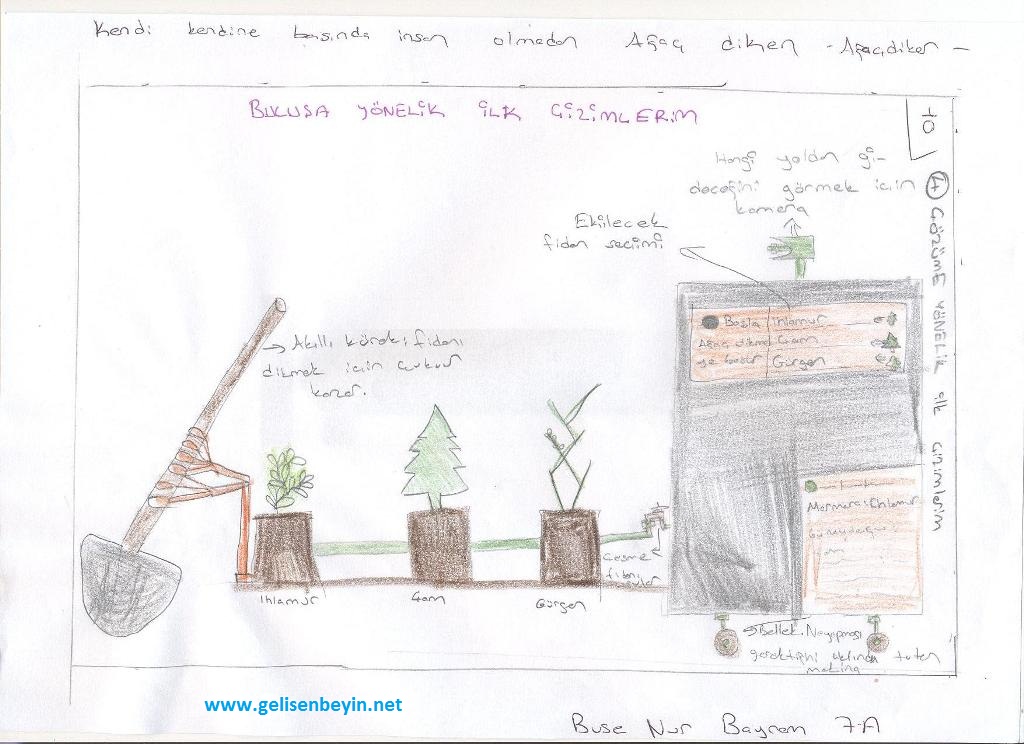 Kendi kendine başında insan olmadan Ağaç diken - Ağaçdiker -
BULUŞA YÖNELİK İLK ÇİZİMLERİM
10
④ ÇÖZÜME YÖNELİK ilk çizimlerim
Hangi yoldan gi-
deceğini görmek için
kamera
Ekilecek
fidan seçimi
Başla ıhlamur
Ağaç dikme Çam
ye basar Gürgen
→ Akıllı kürek; fidanı
dikmek için çukur
kazar.
Marmara: Ihlamur
Çeşme
Ihlamur
Çam
Gürgen
→ Bellek. Ne yapması
gerektiğini aklında tutan
makina
www.gelisenbeyin.net
Buse Nur Bayram 7-A